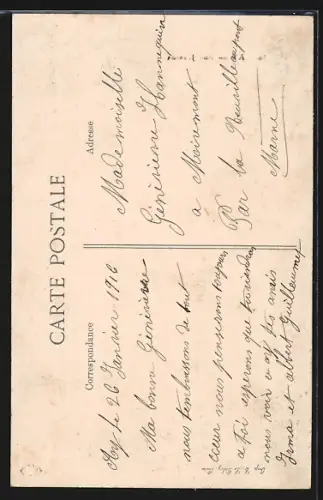 CARTE POSTALE
Correspondance
Adresse
Ay le 26 Janvier 1916
Ma bonne Généviève
nous t'embrassons de tout
cœur nous pensons toujours
a toi esperons que tu viendras
nous voir en tes amis
Irma et albert Guillaumet
Mademoiselle
Généviève Hannequin
à Moiremont
Par la Neuville au pont
Marne